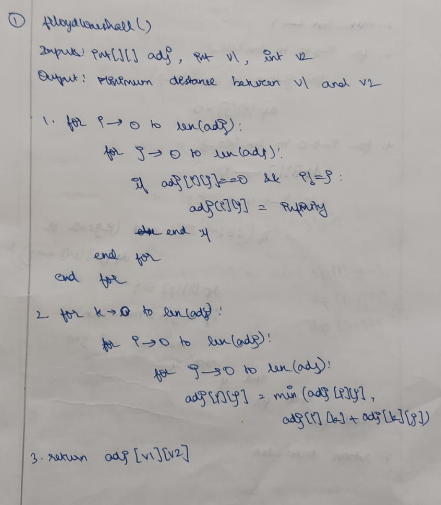 ① floydWarshall()
Input: int[][] adj, int v1, int v2
Output: Minimum distance between v1 and v2
1. for i → 0 to len(adj):
for j → 0 to len(adj):
if adj[i][j]==0 && i!=j:
adj[i][j] = infinity
end if
end for
end for
2. for k → 0 to len(adj):
for i → 0 to len(adj):
for j → 0 to len(adj):
adj[i][j] = min(adj[i][j],
adj[i][k] + adj[k][j])
3. return adj[v1][v2]